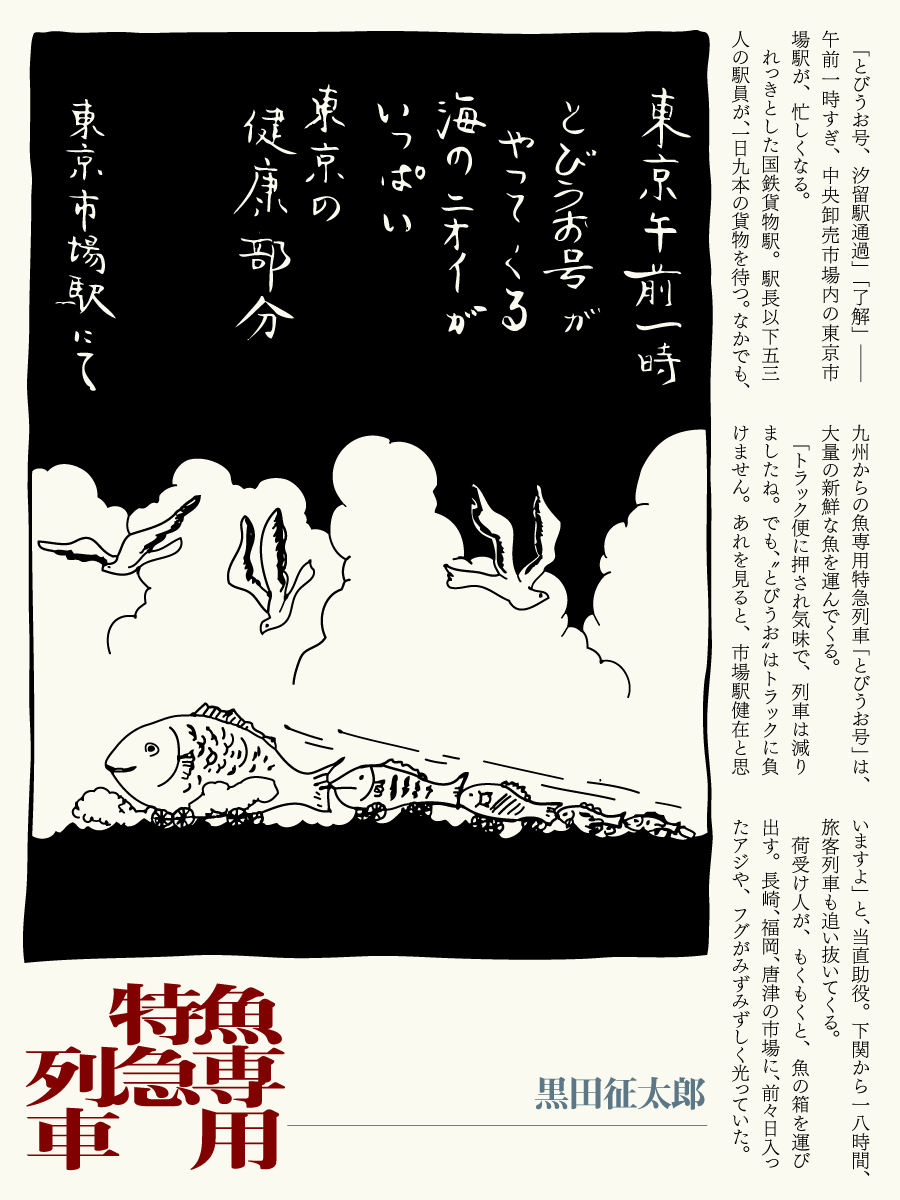 「とびうお号、汐留駅通過」「了解」――
午前一時すぎ、中央卸売市場内の東京市
場駅が、忙しくなる。
れっきとした国鉄貨物駅。駅長以下五三
人の駅員が、一日九本の貨物を待つ。なかでも、
九州からの魚専用特急列車「とびうお号」は、
大量の新鮮な魚を運んでくる。
「トラック便に押され気味で、列車は減り
ましたね。でも、〝とびうお〟はトラックに負
けません。あれを見ると、市場駅健在と思
いますよ」と、当直助役。下関から一八時間、
旅客列車も追い抜いてくる。
荷受け人が、もくもくと、魚の箱を運び
出す。長崎、福岡、唐津の市場に、前々日入っ
たアジや、フグがみずみずしく光っていた。
東京午前一時
とびうお号が
やってくる
海のニオイが
いっぱい
東京の
健康部分
東京市場駅にて
魚専用
特急
列車
黒田征太郎